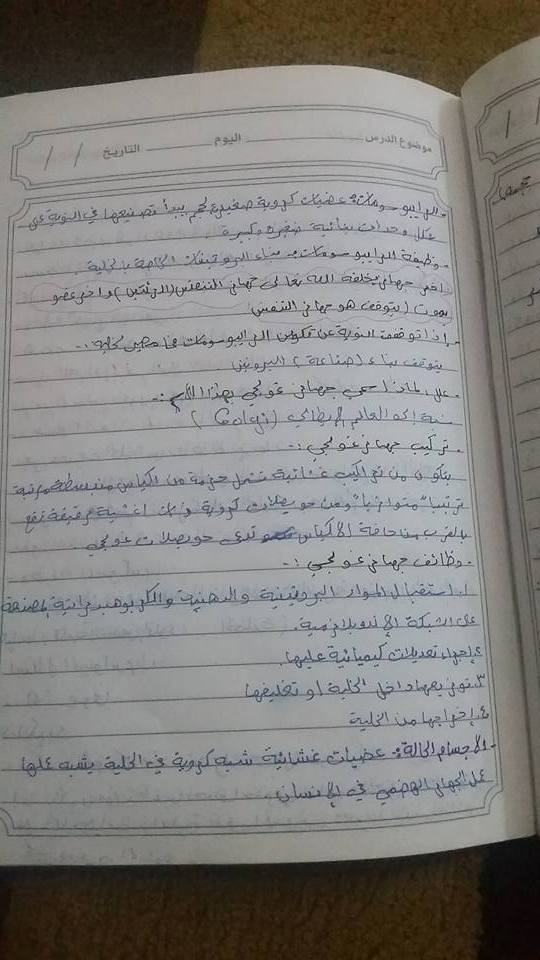 موضوع الدرس اليوم التاريخ / /
- الرايبوسومات: عضيات كروية صغيرة الحجم يبدأ تصنيعها في النوية على
شكل وحدات بنائية صغيرة وكبيرة
- وظيفة الرايبوسومات: بناء البروتينات الخاصة بالخلية.
اخر جهاز يخلقه الله تعالى جهاز التنفس (الرئتين) واخر عضو
يموت (يتوقف هو جهاز التنفس
- إذا توقفت النوية عن تكوين الرايبوسومات فما مصير الخلية :-
يتوقف بناء (صناعة) البروتين
- علل لماذا سمي جهاز غولجي بهذا الاسم :-
نسبة إلى العالم الإيطالي (Golgi)
- تركيب جهاز غولجي :-
يتكون من تراكيب غشائية تشمل حزمة من أكياس منبسطة مرتبة
ترتيباً متوازياً ومن حويصلات كروية ذات اغشية رقيقة تقع
بالقرب من حافة الأكياس تدعى حويصلات غولجي
- وظائف جهاز غولجي :-
١. استقبال المواد البروتينية والدهنية والكربوهيدراتية المصنعة
على الشبكة الإندوبلازمية.
٢. إجراء تعديلات كيميائية عليها.
٣. توزيعها داخل الخلية او تغليفها
٤. إخراجها من الخلية
- الأجسام الحالة: عضيات غشائية شبه كروية في الخلية يشبه عملها
عمل الجهاز الهضمي في الإنسان